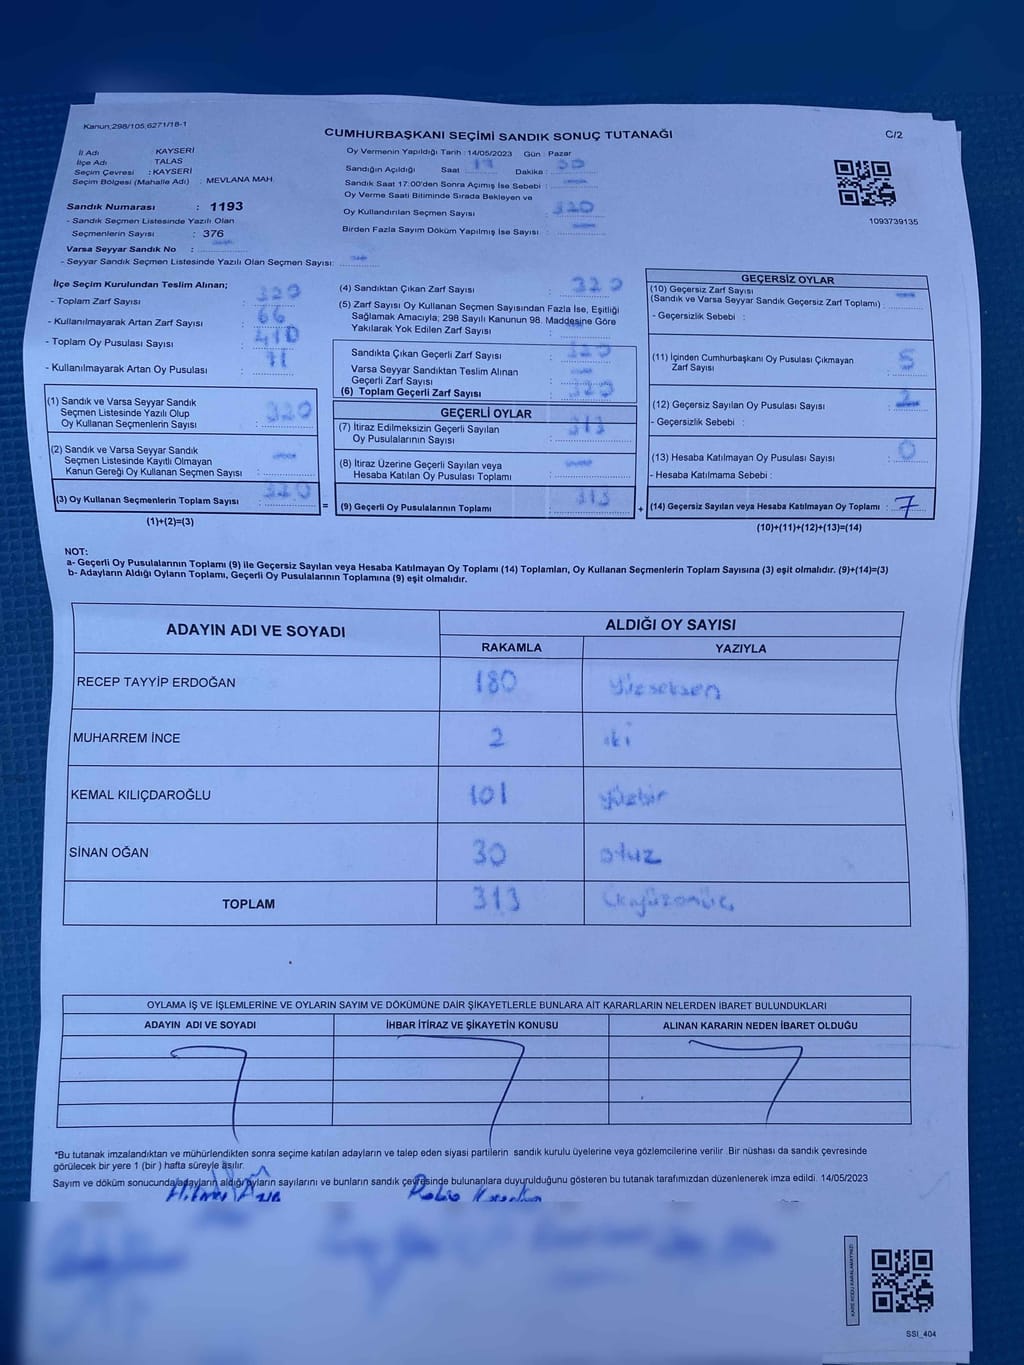 Kanun;298/105;6271/18-1
CUMHURBAŞKANI SEÇİMİ SANDIK SONUÇ TUTANAĞI
C/2
İl Adı KAYSERİ
İlçe Adı TALAS
Seçim Çevresi : KAYSERİ
Seçim Bölgesi (Mahalle Adı) : MEVLANA MAH.
Sandık Numarası : 1193
- Sandık Seçmen Listesinde Yazılı Olan
Seçmenlerin Sayısı : 376
Varsa Seyyar Sandık No :
- Seyyar Sandık Seçmen Listesinde Yazılı Olan Seçmen Sayısı:
Oy Vermenin Yapıldığı Tarih : 14/05/2023 Gün : Pazar
Sandığın Açıldığı Saat : 17 Dakika :
Sandık Saat 17:00'den Sonra Açımış İse Sebebi :
Oy Verme Saati Bitiminde Sırada Bekleyen ve
Oy Kullandırılan Seçmen Sayısı : 320
Birden Fazla Sayım Döküm Yapılmış İse Sayısı :
1093739135
İlçe Seçim Kurulundan Teslim Alınan;
- Toplam Zarf Sayısı :
- Kullanılmayarak Artan Zarf Sayısı : 66
- Toplam Oy Pusulası Sayısı : 410
- Kullanılmayarak Artan Oy Pusulası : 71
(1) Sandık ve Varsa Seyyar Sandık
Seçmen Listesinde Yazılı Olup
Oy Kullanan Seçmenlerin Sayısı : 320
(2) Sandık ve Varsa Seyyar Sandık
Seçmen Listesinde Kayıtlı Olmayan
Kanun Gereği Oy Kullanan Seçmen Sayısı :
(3) Oy Kullanan Seçmenlerin Toplam Sayısı : 320
(1)+(2)=(3)
=
(4) Sandıktan Çıkan Zarf Sayısı : 320
(5) Zarf Sayısı Oy Kullanan Seçmen Sayısından Fazla İse, Eşitliği
Sağlamak Amacıyla; 298 Sayılı Kanunun 98. Maddesine Göre
Yakılarak Yok Edilen Zarf Sayısı :
Sandıkta Çıkan Geçerli Zarf Sayısı : 320
Varsa Seyyar Sandıktan Teslim Alınan
Geçerli Zarf Sayısı :
(6) Toplam Geçerli Zarf Sayısı : 320
GEÇERLİ OYLAR
(7) İtiraz Edilmeksizin Geçerli Sayılan
Oy Pusulalarının Sayısı : 313
(8) İtiraz Üzerine Geçerli Sayılan veya
Hesaba Katılan Oy Pusulası Toplamı :
(9) Geçerli Oy Pusulalarının Toplamı : 313
+
GEÇERSİZ OYLAR
(10) Geçersiz Zarf Sayısı
(Sandık ve Varsa Seyyar Sandık Geçersiz Zarf Toplamı) :
- Geçersizlik Sebebi :
(11) İçinden Cumhurbaşkanı Oy Pusulası Çıkmayan
Zarf Sayısı : 5
(12) Geçersiz Sayılan Oy Pusulası Sayısı : 2
- Geçersizlik Sebebi :
(13) Hesaba Katılmayan Oy Pusulası Sayısı : 0
- Hesaba Katılmama Sebebi :
(14) Geçersiz Sayılan veya Hesaba Katılmayan Oy Toplamı : 7
(10)+(11)+(12)+(13)=(14)
NOT:
a- Geçerli Oy Pusulalarının Toplamı (9) ile Geçersiz Sayılan veya Hesaba Katılmayan Oy Toplamı (14) Toplamları, Oy Kullanan Seçmenlerin Toplam Sayısına (3) eşit olmalıdır. (9)+(14)=(3)
b- Adayların Aldığı Oyların Toplamı, Geçerli Oy Pusulalarının Toplamına (9) eşit olmalıdır.
ADAYIN ADI VE SOYADI ALDIĞI OY SAYISI
RAKAMLA YAZIYLA
RECEP TAYYİP ERDOĞAN 180 Yüzseksen
MUHARREM İNCE 2 iki
KEMAL KILIÇDAROĞLU 101 yüzbir
SİNAN OĞAN 30 otuz
TOPLAM 313 üçyüzonüç
OYLAMA İŞ VE İŞLEMLERİNE VE OYLARIN SAYIM VE DÖKÜMÜNE DAİR ŞİKAYETLERLE BUNLARA AİT KARARLARIN NELERDEN İBARET BULUNDUKLARI
ADAYIN ADI VE SOYADI İHBAR İTİRAZ VE ŞİKAYETİN KONUSU ALINAN KARARIN NEDEN İBARET OLDUĞU
*Bu tutanak imzalandıktan ve mühürlendikten sonra seçime katılan adayların ve talep eden siyasi partilerin sandık kurulu üyelerine veya gözlemcilerine verilir. Bir nüshası da sandık çevresinde
görülecek bir yere 1 (bir ) hafta süreyle asılır.
Sayım ve döküm sonucunda adayların aldığı oyların sayılarını ve bunların sandık çevresinde bulunanlara duyurulduğunu gösteren bu tutanak tarafımızdan düzenlenerek imza edildi. 14/05/2023
KARE KODU KARALAMAYINIZ!
SSI_404